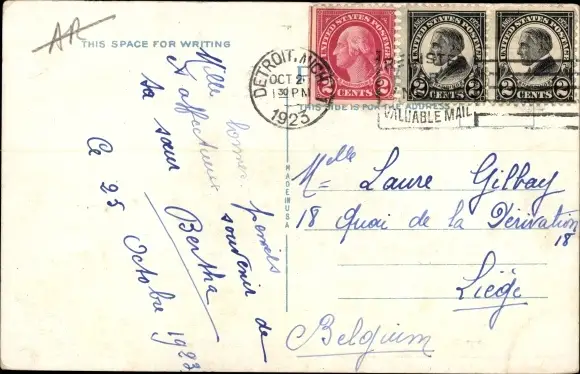 AR
THIS SPACE FOR WRITING
Mille bonnes pensées
& affectueux souvenir de
ta sœur Bertha
Ce 25 Octobre 1923
MADE IN USA
UNITED STATES POSTAGE
2 CENTS 2
UNITED STATES POSTAGE
2 CENTS 2
UNITED STATES POSTAGE
2 CENTS 2
DETROIT, MICH
OCT 2
130 PM
1923
VALUABLE MAIL
THIS SIDE IS FOR THE ADDRESS
Melle
M= Laure Gilbay
18 Quai de la Dérivation
18
Liége
Belgium